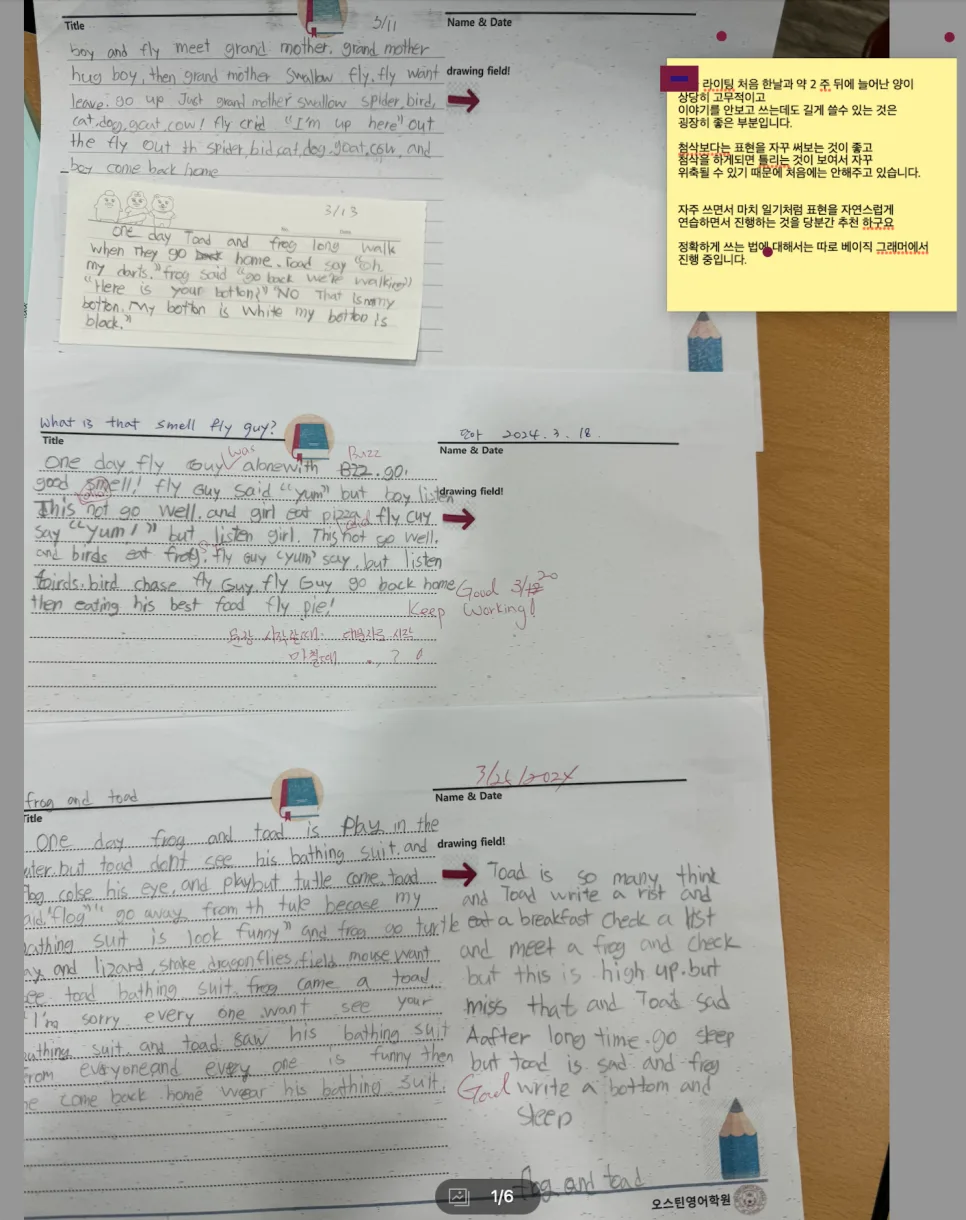 Title
3/11
Name & Date
boy and fly meet grand mother. grand mother
hug boy, then grand mother swallow fly, fly want
leave. go up Just grand mother swallow spider, bird,
cat, dog, goat, cow! fly crid "I'm up here" out
the fly out th spider, bid, cat, dog, goat, cow, and
boy come back home
drawing field!
3/13
one day Toad and frog long walk
when They go back home. Toad say "oh
my darts." frog said "go back we're walking"
"Here is your botton?" "NO That is n my
botton. My botton is white my botton is
black."
라이팅 처음 한날과 약 2 주 뒤에 늘어난 양이
상당히 고무적이고
이야기를 안보고 쓰는데도 길게 쓸수 있는 것은
굉장히 좋은 부분입니다.
첨삭보다는 표현을 자꾸 써보는 것이 좋고
첨삭을 하게되면 틀리는 것이 보여서 자꾸
위축될 수 있기 때문에 처음에는 안해주고 있습니다.
자주 쓰면서 마치 일기처럼 표현을 자연스럽게
연습하면서 진행하는 것을 당분간 추천 하구요
정확하게 쓰는 법에 대해서는 따로 베이직 그래머에서
진행 중입니다.
What is that smell fly guy?
Title
2024. 3. 18.
Name & Date
was
Buzz
One day, fly Guy alone with Bzz. go,
good smell! fly Guy said "yum" but boy listen
This not go well. and girl eat pizza, fly Guy
say "yum!" but listen girl. This not go well.
and birds eat frog, fly Guy "yum" say, but listen
birds. bird chase fly Guy. fly Guy go back home
then eating his best food fly pie!
drawing field!
Good 3/20
Keep Working!
문장 시작할때 대문자로 시작
마칠때 . , ? !
frog and toad
Title
3/25/2024
Name & Date
One day frog and toad is play in the
ater. but toad dont see his bathing suit. and
colse his eye, and play but tutle come. toad
aid "flog" " go away from th tule becase my
athing suit is look funny" and frog go turtle
ay and lizard, snake, dragonflies, field mouse want
ee toad bathing suit. frog came a toad.
"I'm sorry every one want see your
athing suit. and toad saw his bathing suit
rom everyone and every one is funny then
e come back home wear his bathing suit.
drawing field!
Toad is so many think
and Toad write a rist and
eat a breakfast check a list
and meet a frog and check
but this is high up. but
miss that and Toad sad
Aafter long time. go sleep
but toad is sad and frog
write a bottom and
sleep
frog and toad
1/6
오스틴영어학원